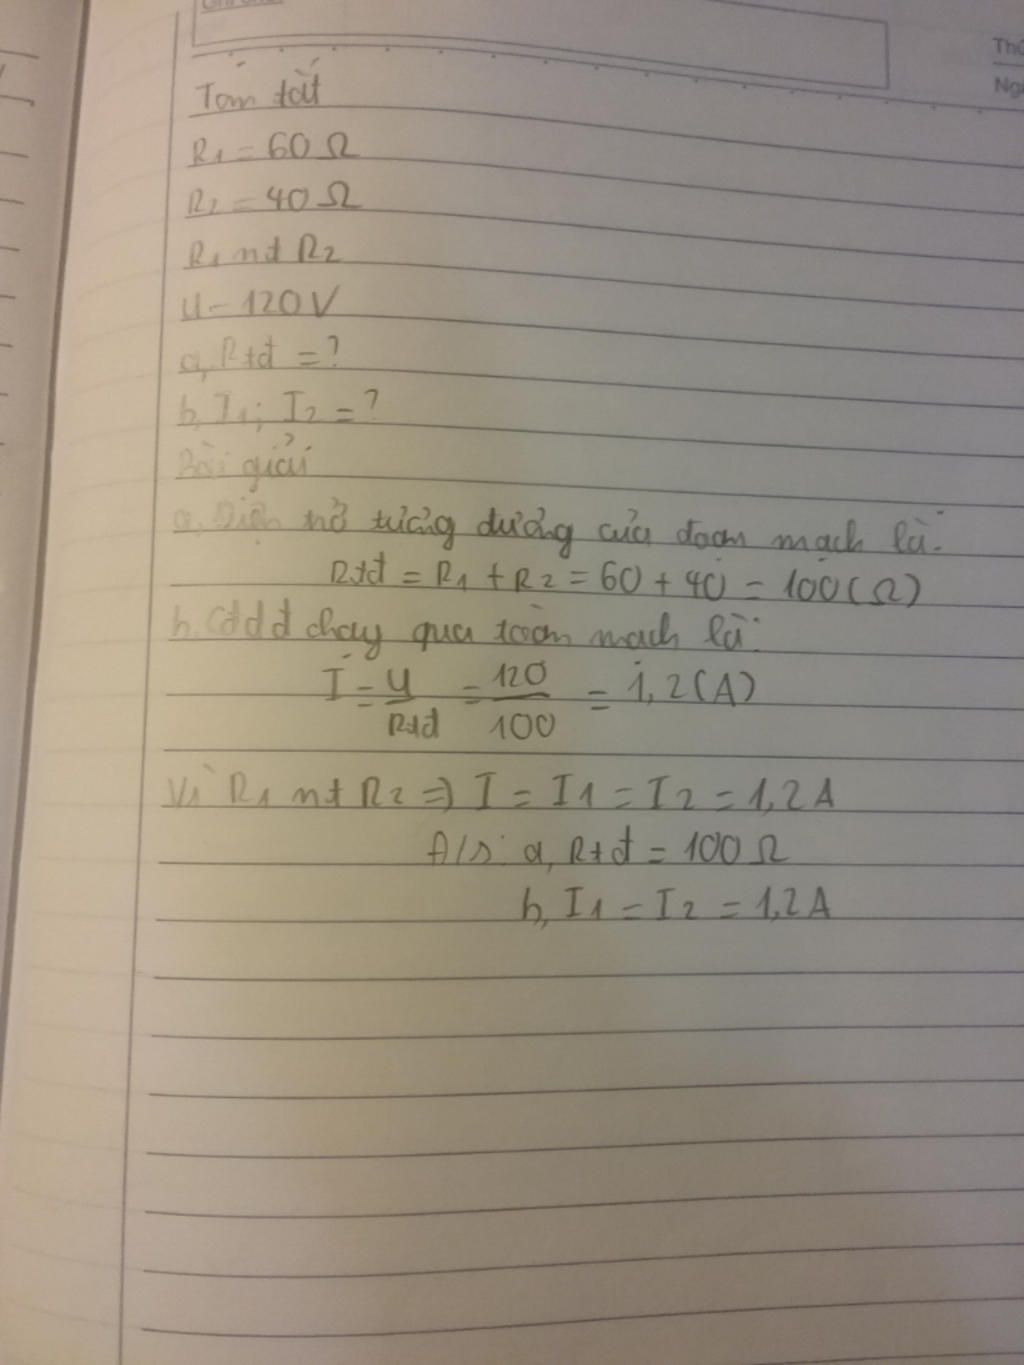 Thứ
Ngà
Tóm tắt
R1 = 60 Ω
R2 = 40 Ω
R1 nt R2
U = 120V
a, Rtđ = ?
b, I1; I2 = ?
Bài giải
a, Điện trở tương đương của đoạn mạch là:
Rtđ = R1 + R2 = 60 + 40 = 100 (Ω)
b, Cđdđ chạy qua toàn mạch là:
I = U/Rtđ = 120/100 = 1,2 (A)
Vì R1 nt R2 => I = I1 = I2 = 1,2 A
Đ/s: a, Rtđ = 100 Ω
b, I1 = I2 = 1,2 A